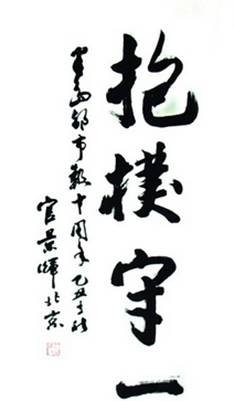 抱樸守一
半島都市報十周年 己丑之秋
官景輝北京